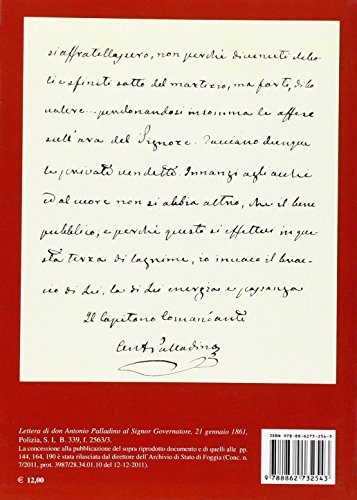 si affratellassero, non perchè divenuti debo-
li e sfiniti sotto del martirio, ma forti, di lo
valere... perdonandosi insomma le offese
sull'ara del Signore. Tacciano dunque
le private vendette. Innanzi agli occhi
ed al cuore non si abbia altro, che il bene
pubblico; e perchè questo si effettui in que
sta terra di lagrime, io invoco il brac-
cio di Lei, la di Lei energia e possanza
Il Capitano Comandante
Ant. Palladino
Lettera di don Antonio Palladino al Signor Governatore, 21 gennaio 1861,
Polizia, S. I, B. 339, f. 2563/3.
La concessione alla pubblicazione del sopra riprodotto documento e di quelli alle pp.
144, 164, 190 è stata rilasciata dal direttore dell'Archivio di Stato di Foggia (Conc. n.
7/2011, prot. 3987/28.34.01.10 del 12-12-2011).
€ 12,00
ISBN 978-88-6273-254-3
9 788862 732543